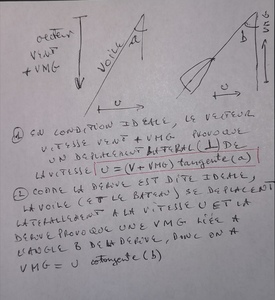 vecteur
VENT
+ VMG
VOILE
a
U
B
U
① EN CONDITION IDEALE, LE VECTEUR
VITESSE VENT + VMG PROVOQUE
UN DEPLACEMENT LATERAL (⊥) DE
LA VITESSE U = (V + VMG) tangente (a)
② COMME LA DERIVE EST DITE IDEALE,
LA VOILE (ET LE BATEAU) SE DEPLACENT
LATERALLEMENT A LA VITESSE U ET LA
DERIVE PROVOQUE UNE VMG LIÉE A
L'ANGLE B DE LA DERIVE, DONC ON A
VMG = U cotangente (b)